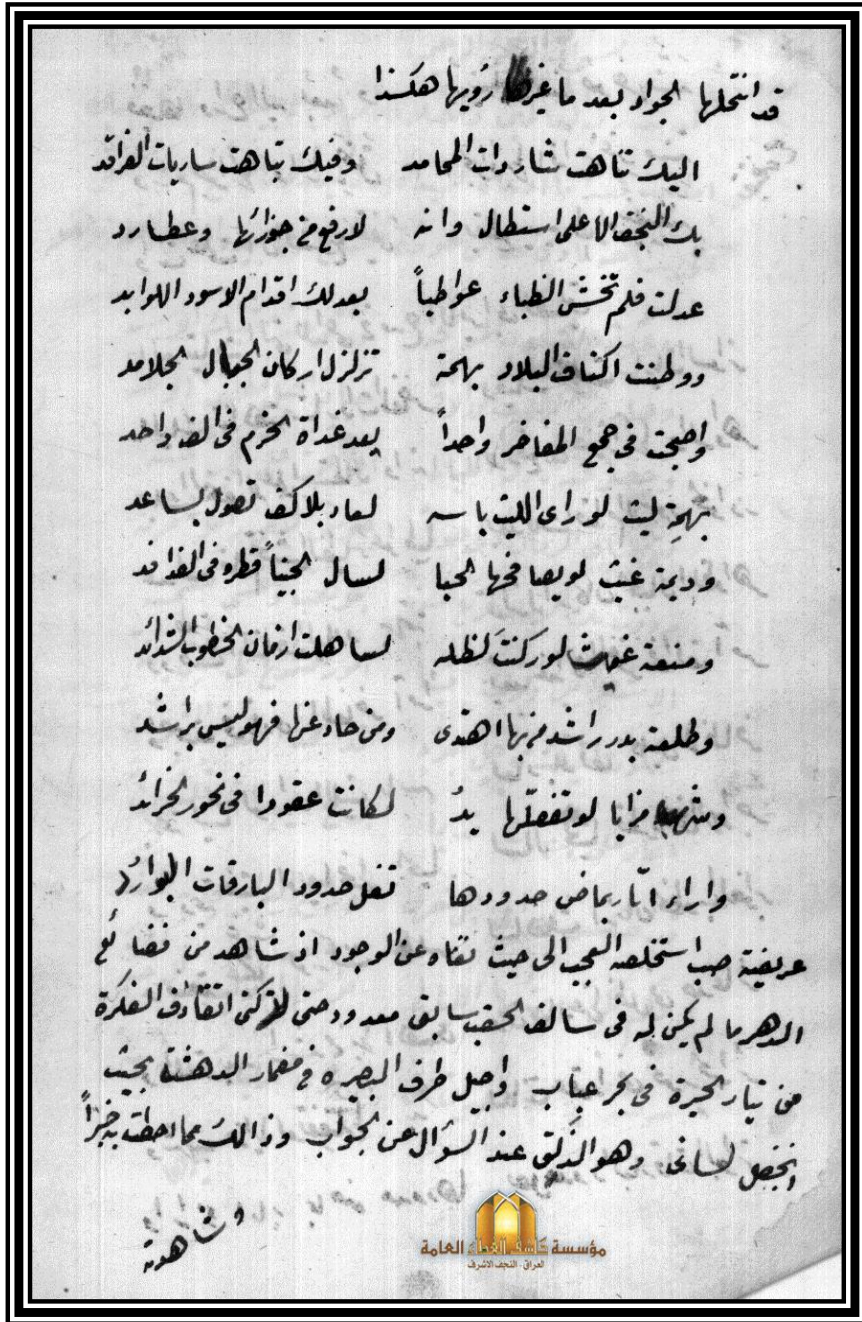 قد انتحلها الجواد بعد ما غير رويها هكذا
اليك تناهت شاردات المحامد وفيك تباهت ساريات الفراقد
بك النجف الاعلى استطال وانه لارفع من جوزائها وعطارد
عدلت فلم تخش الظباء عواطباً بعدلك اقدام الاسود اللوابد
ووطنت اكناف البلاد بهمة تزلزل اركان الجبال الجلامد
واصبحت في جمع المفاخر واحداً يعد غداة الحزم فى الف واحد
بهمة ليث لو راى الليث باسه لعاد بلا كف تصول بساعد
وديمة غيث لو يصافحها الحيا لسال لجيناً قطره فى الفدافد
ومنعة لو ركنت لظله لساهلت ازمان الخطوب الشدائد
وطلعة بدر راشد من بها اهتدى ومن حاد عنها فهو ليس براشد
مزايا لو تفصلها يدٌ لكانت عقودا فى نحور الخرائد
واراء بماض حدودها تفل حدود البارقات البوارد
عريضة صب استخلصه العجب الى حيث نفاه عن الوجود اذ شاهد من فضائع
الدهر ما لم يكن له فى سالف الحقب سابق معدود حتى اتقاذف الفكرة
من تيار الحيرة فى بحر عباب واجيل طرف البصيره فى مضمار الدهشة بحيث
لسانى وهو الذلق عند السؤال عن الجواب وذالك مما احطت به خبراً
وشاهدته
مؤسسة كاشف الغطاء العامة
العراق - النجف الاشرف